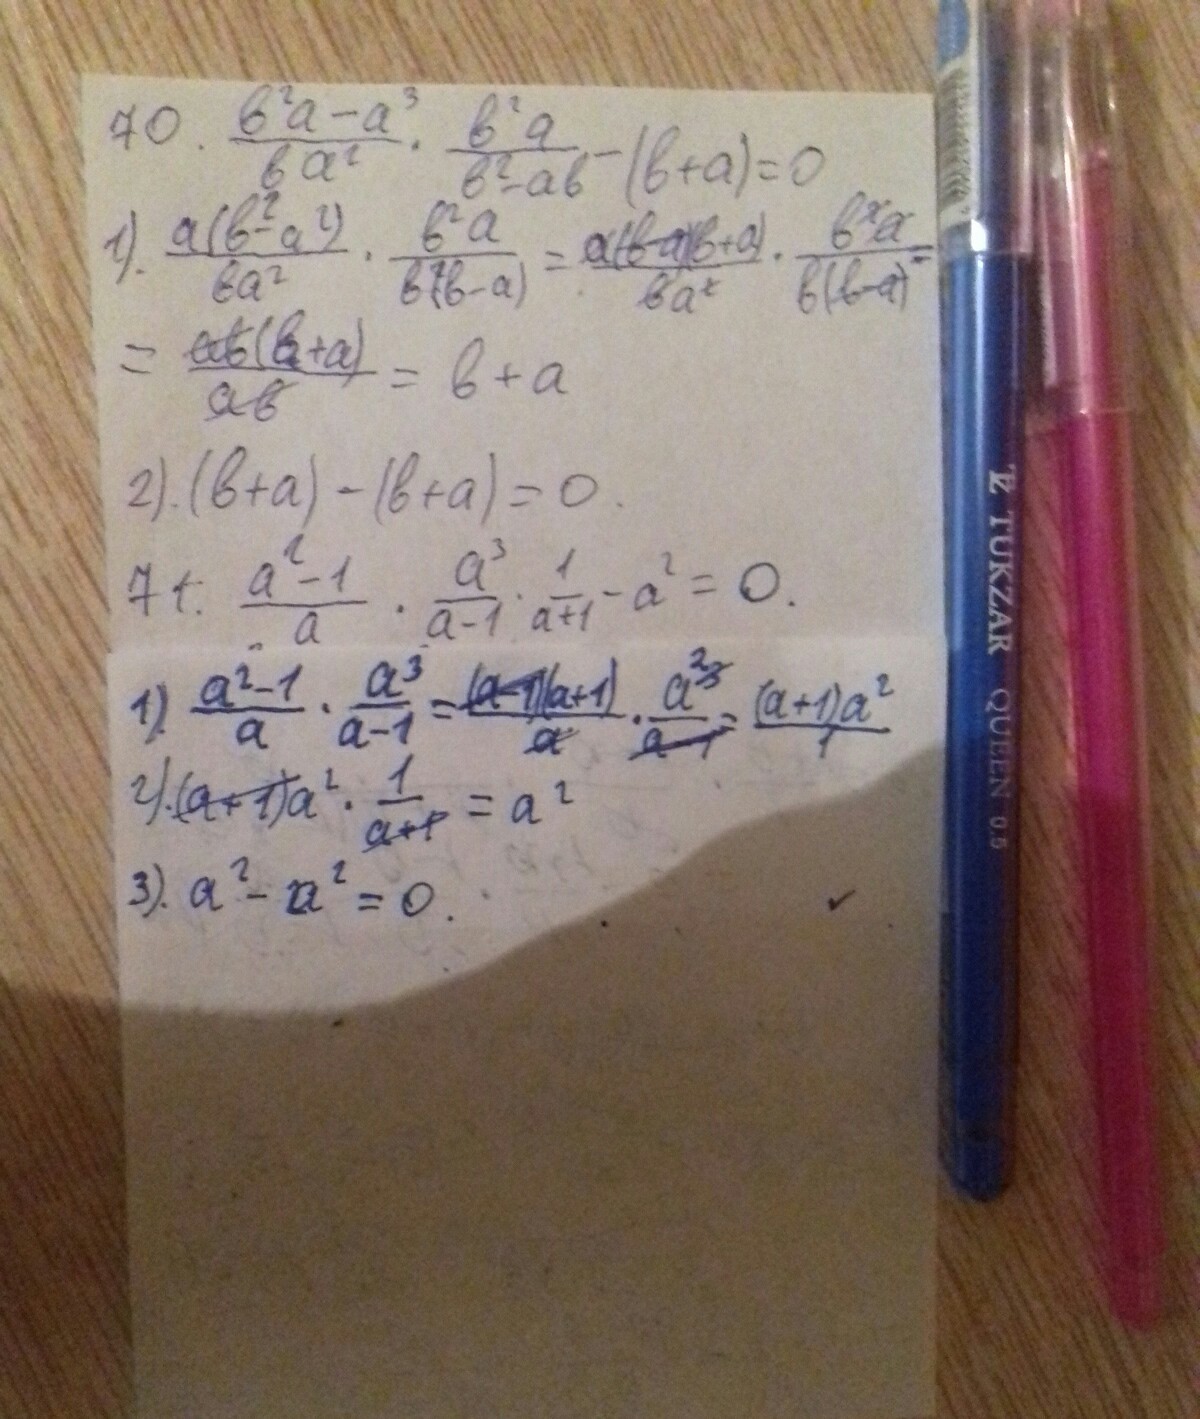 70. (в²a - a³)/(вa²) · (в²a)/(в²-aв) - (в+a) = 0
1). (a(в²-a²))/(вa²) · (в²a)/(в(в-a)) = (a(в-a)(в+a))/(вa²) · (в²a)/(в(в-a)) =
= (aв(в+a))/(aв) = в + a
2). (в+a) - (в+a) = 0.
71. (a²-1)/a · a³/(a-1) · 1/(a+1) - a² = 0.
1). (a²-1)/a · a³/(a-1) = ((a-1)(a+1))/a · a³/(a-1) = ((a+1)a²)/1
2). (a+1)a² · 1/(a+1) = a²
3). a² - a² = 0.
TUKZAR QUEEN 0.5